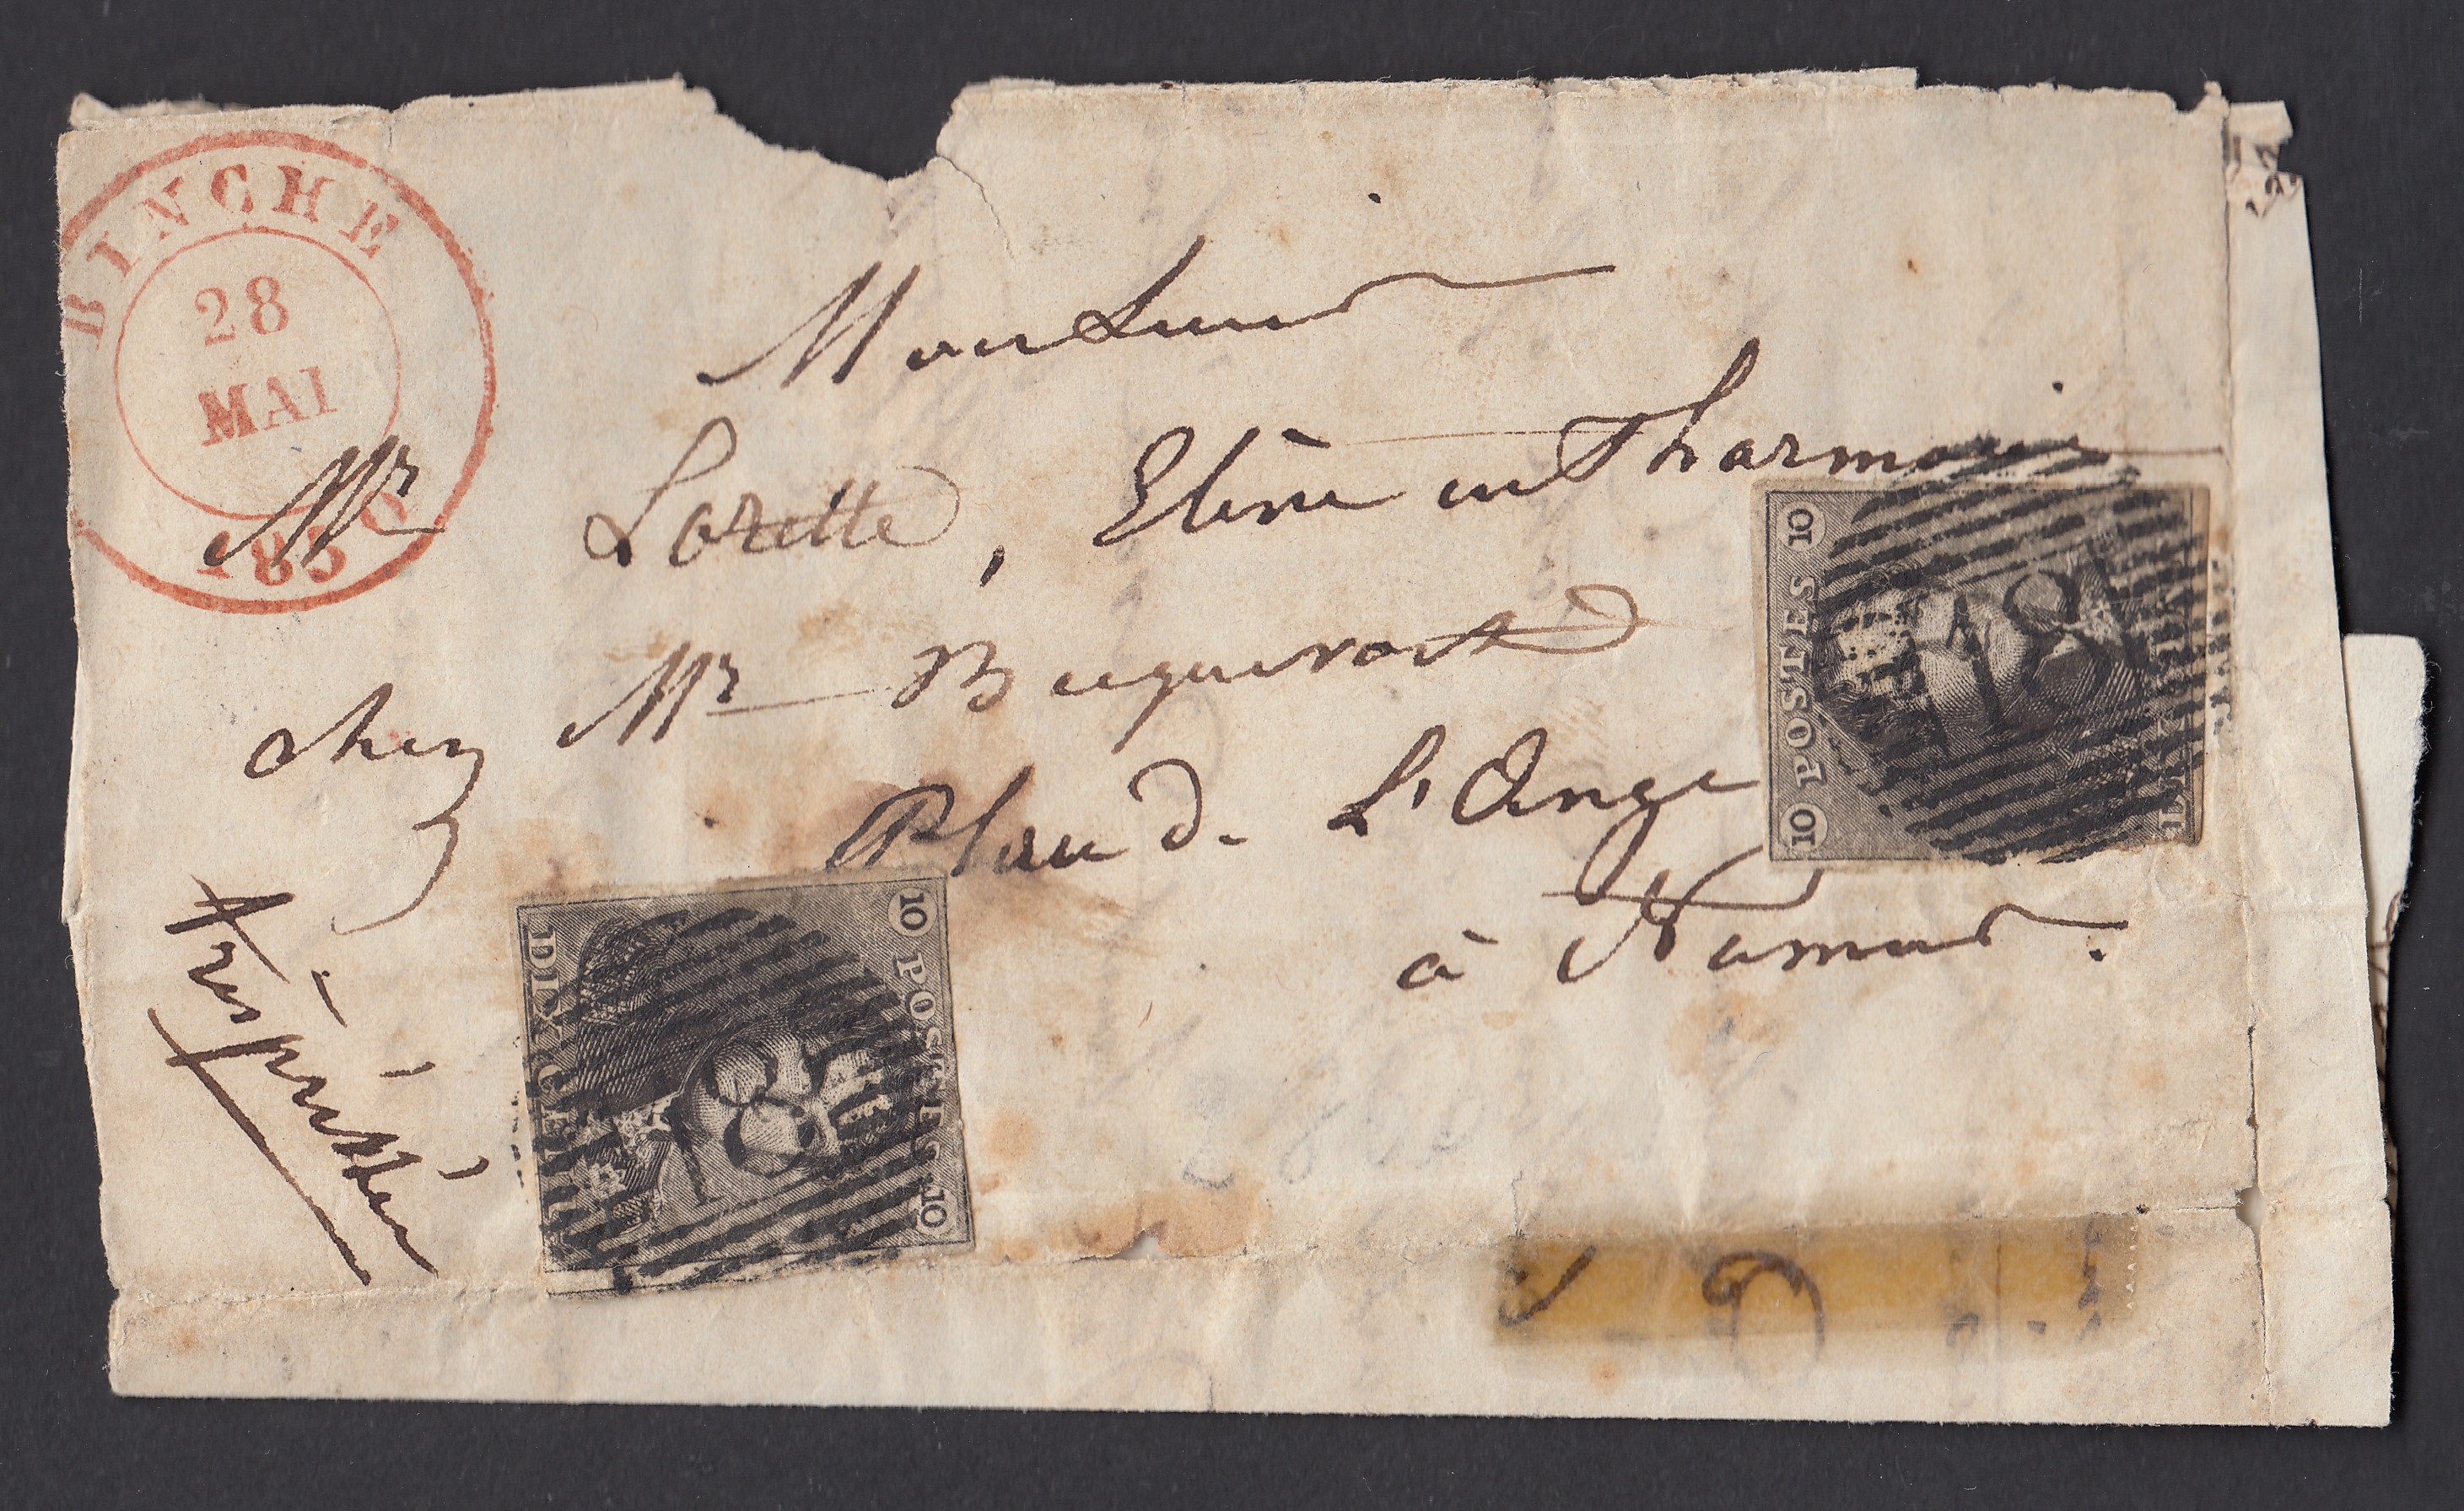 BINCHE
28
MAI
1850
Monsieur
Mr Lorette, Elève en Pharmacie
chez Mr
Place de L'Ange
à Namur.
très pressée
10 POSTES 10
18
10 POSTES 10
DIX CENTS
18